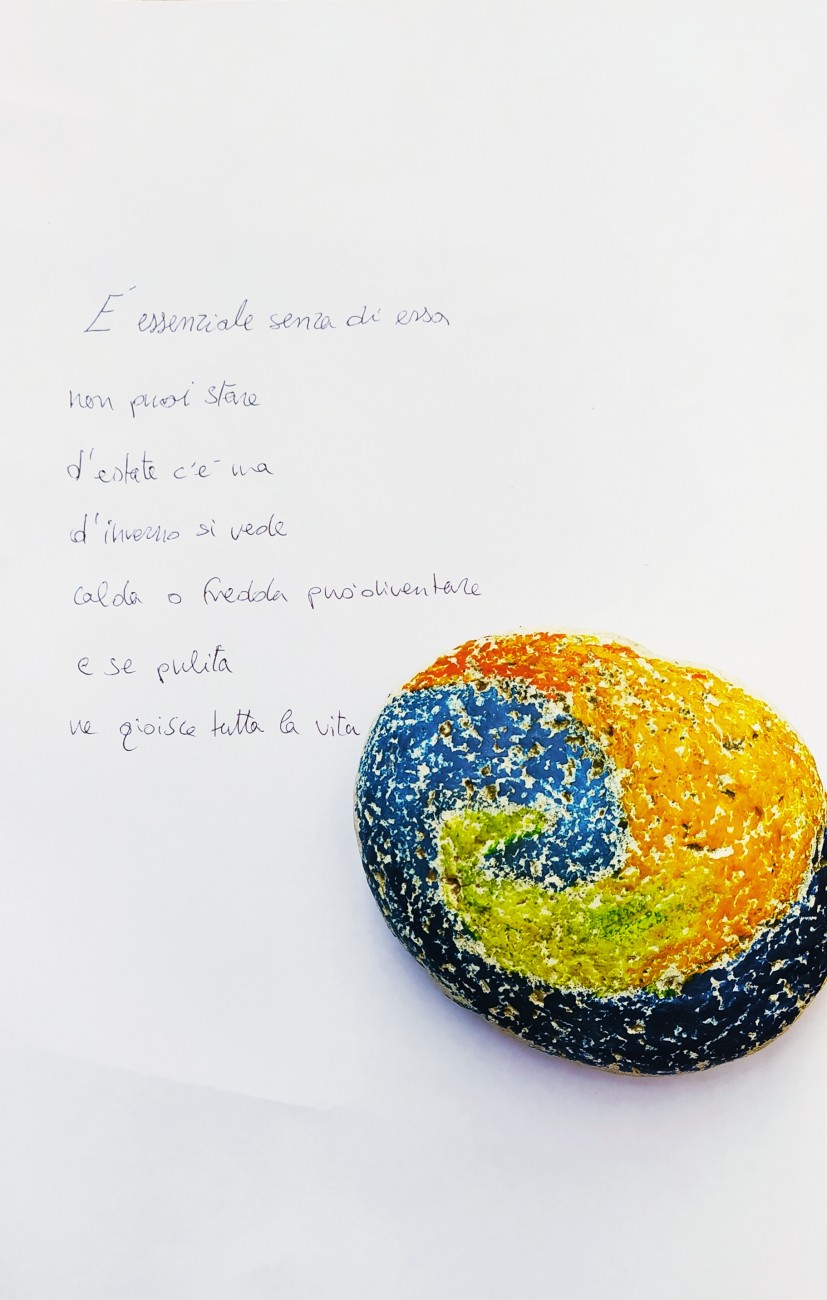 E' essenziale senza di essa
non puoi stare
d'estate c'è ma
d'inverno si vede
calda o fredda può diventare
e se pulita
ne gioisce tutta la vita